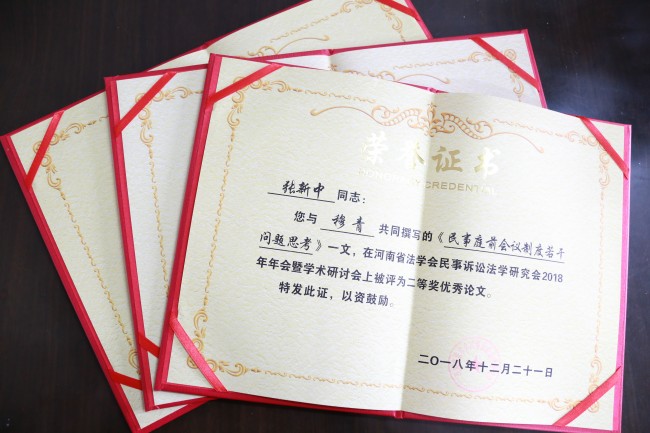 荣誉证书
HONORARY CREDENTIAL
张新中 同志：
您与 穆青 共同撰写的《民事庭前会议制度若干
问题思考》一文，在河南省法学会民事诉讼法学研究会2018
年年会暨学术研讨会上被评为二等奖优秀论文。
特发此证，以资鼓励。
二〇一八年十二月二十一日